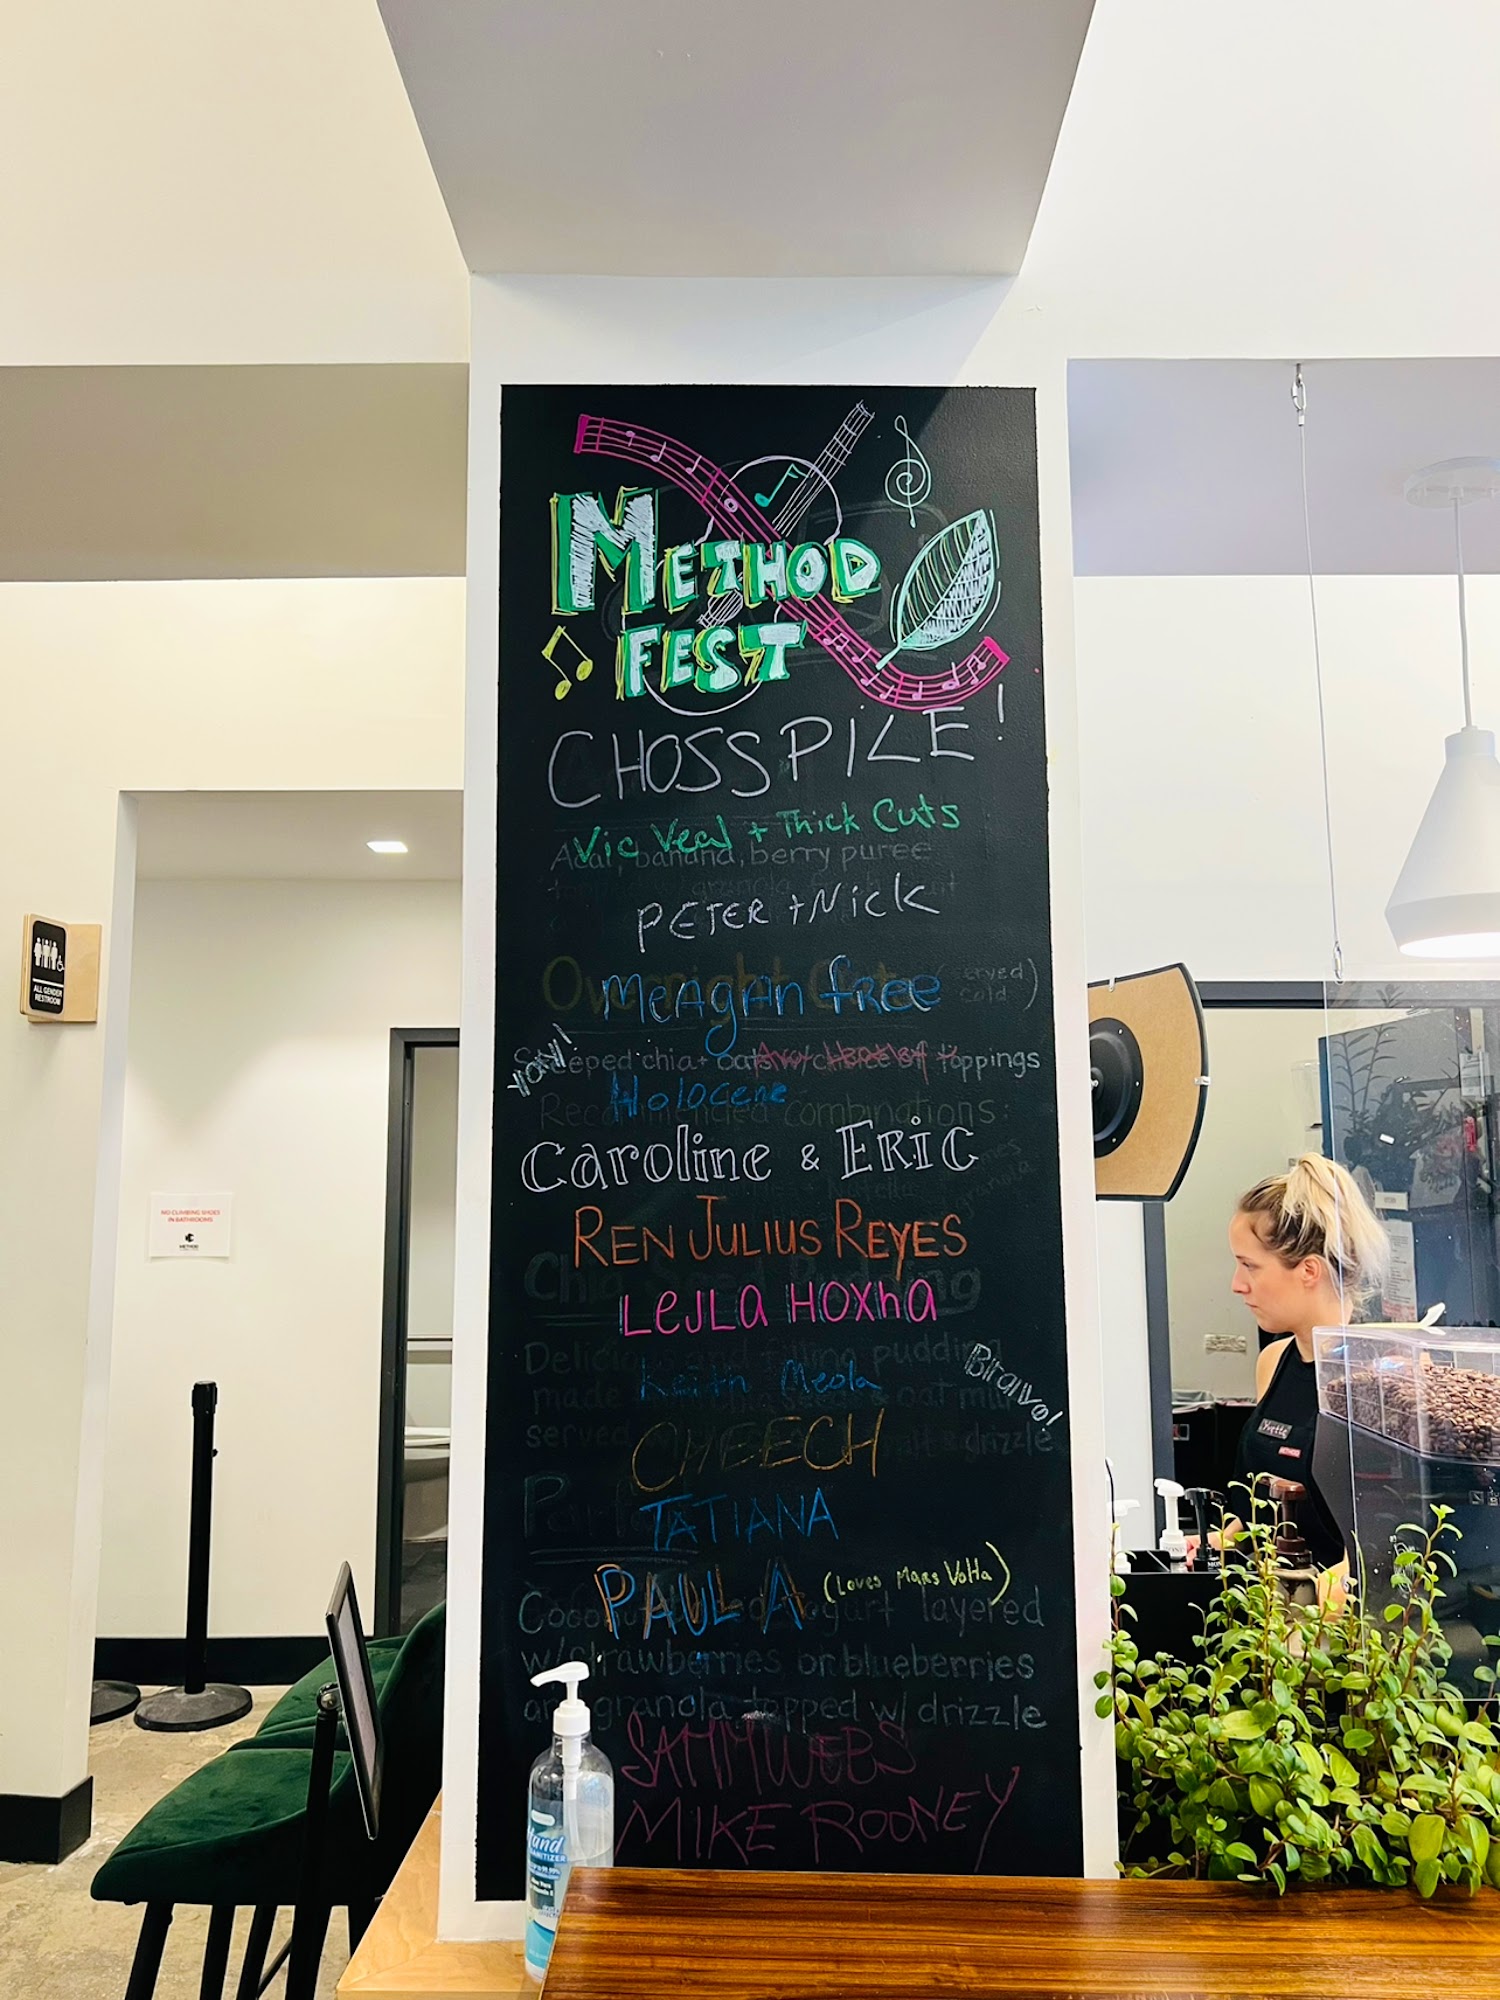 METHOD
FEST
CHOSSPILE!
Vic Veal + Thick Cuts
Acai, banana, berry puree
granola
PETER + NICK
Overnight Oats (served cold)
Meagan free
YON!
Steeped chia + oats w/ choice of toppings
Holocene
Recommended combinations:
Caroline & ERIC
REN JULIUS REYES
Chia Seed Pudding
LEJLA HOXHA
Delicious and filling pudding
Keith Meola
made oat milk
Bravo!
served drizzle
CHEECH
TATIANA
PAULA (Loves Mars Volta)
Coconut yogurt layered
w/ strawberries or blueberries
and granola topped w/ drizzle
SAMMWEBS
MIKE ROONEY
ALL GENDER
RESTROOM
NO CLIMBING SHOES
IN BATHROOMS
METHOD
Yvette
hand
SANITIZER